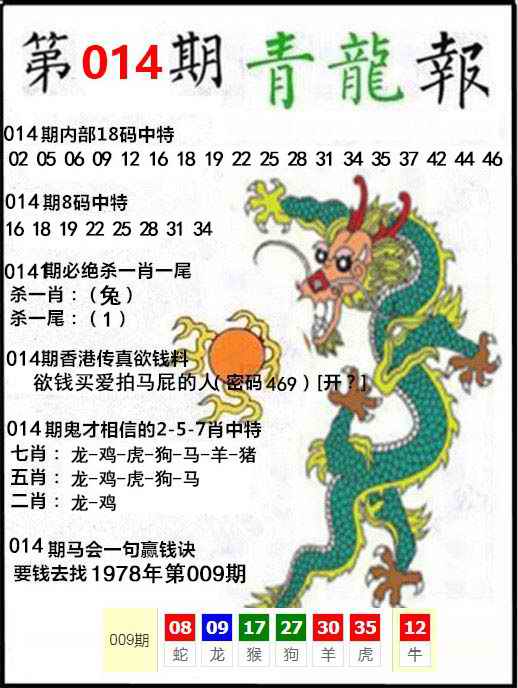 第014期青龍報
014期内部18码中特
02 05 06 09 12 16 18 19 22 25 28 31 34 35 37 42 44 46
014期8码中特
16 18 19 22 25 28 31 34
014期必绝杀一肖一尾
杀一肖：（兔）
杀一尾：（1）
014期香港传真欲钱料
欲钱买爱拍马屁的人（密码469）[开？]
014期鬼才相信的2-5-7肖中特
七肖：龙-鸡-虎-狗-马-羊-猪
五肖：龙-鸡-虎-狗-马
二肖：龙-鸡
014期马会一句赢钱诀
要钱去找1978年第009期
009期 08 09 17 27 30 35 12
蛇 龙 猴 狗 羊 虎 牛